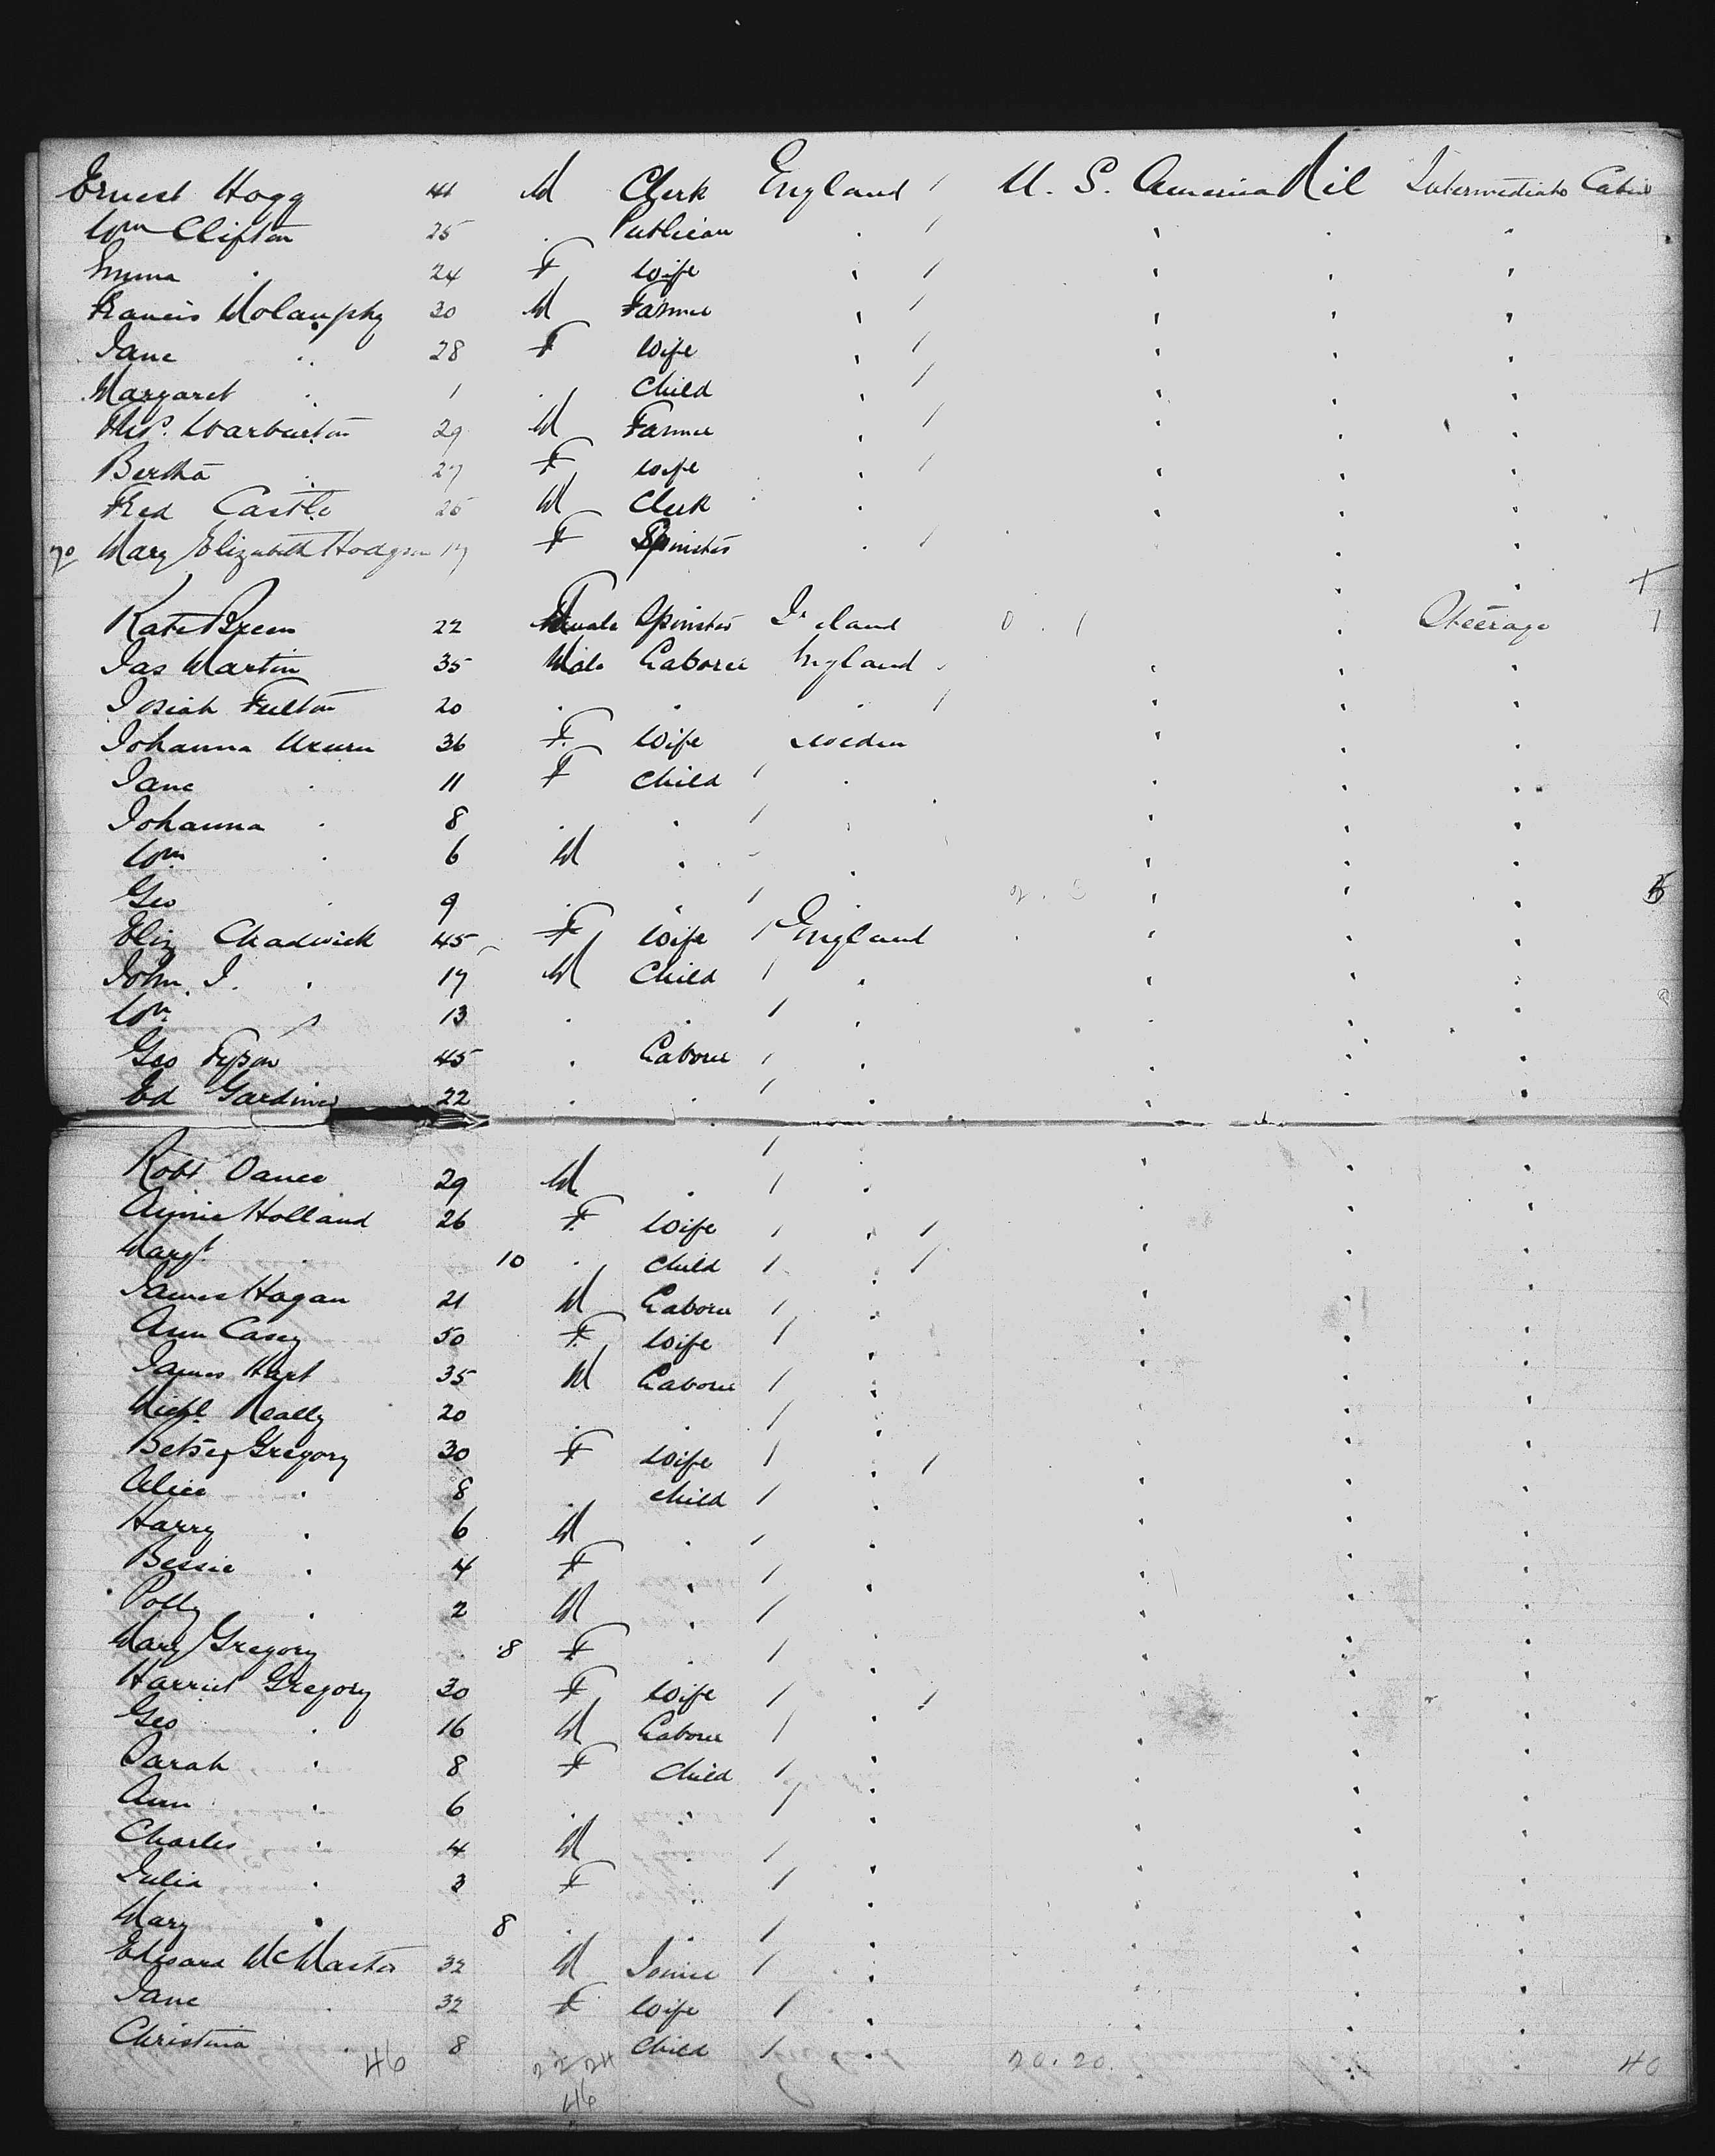 Ernest Hogg 41 M Clerk England / U. S. America Nil Intermediate Cabin
Wm Clifton 25 . Publican . / " . "
Emma . 24 F Wife " / " " "
Francis Molamphy 30 M Farmer " / " " "
Jane " 28 F Wife " / " " "
Margaret . 1 . Child " / " " "
Thos. Warburton 29 M Farmer " / " " "
Bertha . 27 F Wife " / " " "
Fred Castle 25 M Clerk . " " "
20 Mary Elizabeth Hodgson 17 F Spinster . / " "
Kate Breen 22 Female Spinster Ireland 0 . 1 . Steerage 1
Jas Martin 35 Male Laborer England " " "
Josiah Fulton 20 . . . / " " "
Johanna 36 F. Wife Sweden "
Jane . 11 F Child / . " " "
Johanna . 8 . . / . " " "
Wm . 6 M . . " " "
Geo . 9 . " / . 2 . 3 " " " 5
Eliz Chadwick 45 F Wife / England " " "
John J. . 17 M Child / . " " "
Wm " 13 . . / . . " "
Geo 45 . Laborer / . . " "
Ed Gardiner 22 . . / . " " "
Robt Dance 29 M . / . " " "
Annie Holland 26 F. Wife / . / " " "
Margt. . 10 . Child / . / " " "
James Hagan 21 M Laborer / . " " "
Ann Casey 50 F. Wife / . " " "
James Hart 35 M Laborer / . " " "
Michl. Neally 20 . . / . " " "
Betsey Gregory 30 F Wife / . / " " "
Alice . 8 . Child / . " " "
Harry . 6 M . / . " " "
Bessie . 4 F . / . " " "
Polly . 2 M . / . " " "
Mary Gregory . 8 F . / . " " "
Harriet Gregory 30 F Wife / . / " " "
Geo . 16 M Laborer / . " " "
Sarah . 8 F Child / . " " "
Ann . 6 . " / . " " "
Charles . 4 M . / . " " "
Julia . 3 F . / . " " "
Mary . 8 . . / . " " "
Edward McMaster 32 M Joiner / . " " "
Jane . 32 F Wife / . " " "
Christina . 8 . Child / . " " "
46 22 24 20. 20. 40
46